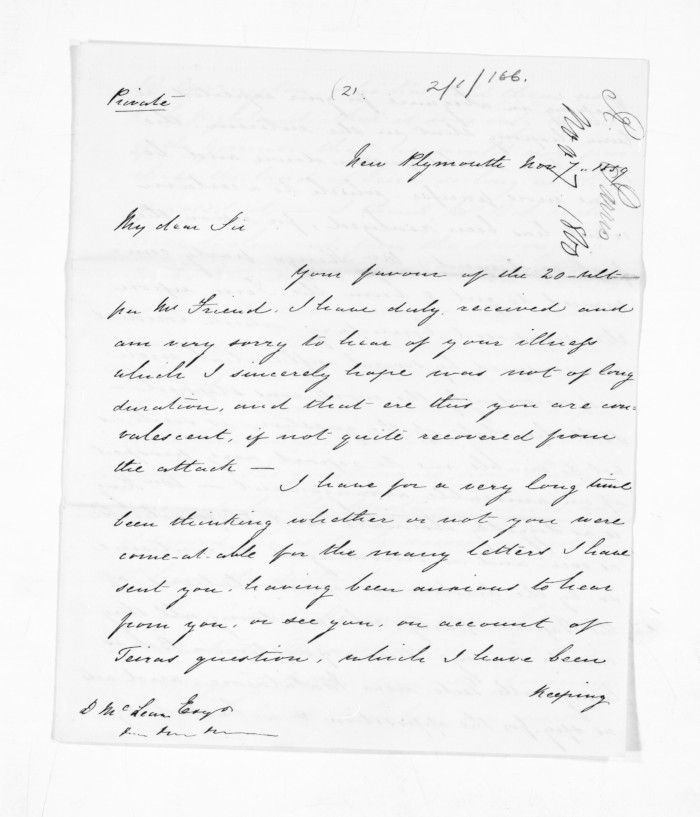 Private
(21.
2/1/166.
New Plymouth Nov 7.. 1859
R Parris
Nov 7 1860
My dear Sir
Your favour of the 20 ult
per Mr Friend. I have duly received and
am very sorry to hear of your illness
which I sincerely hope was not of long
duration, and that ere this you are con-
valescent, if not quite recovered from
the attack —
I have for a very long time
been thinking whether or not you were
come-at-able for the many letters I have
sent you. having been anxious to hear
from you, or see you, on account of
Teiras question, which I have been
Keeping
D McLean Esqr